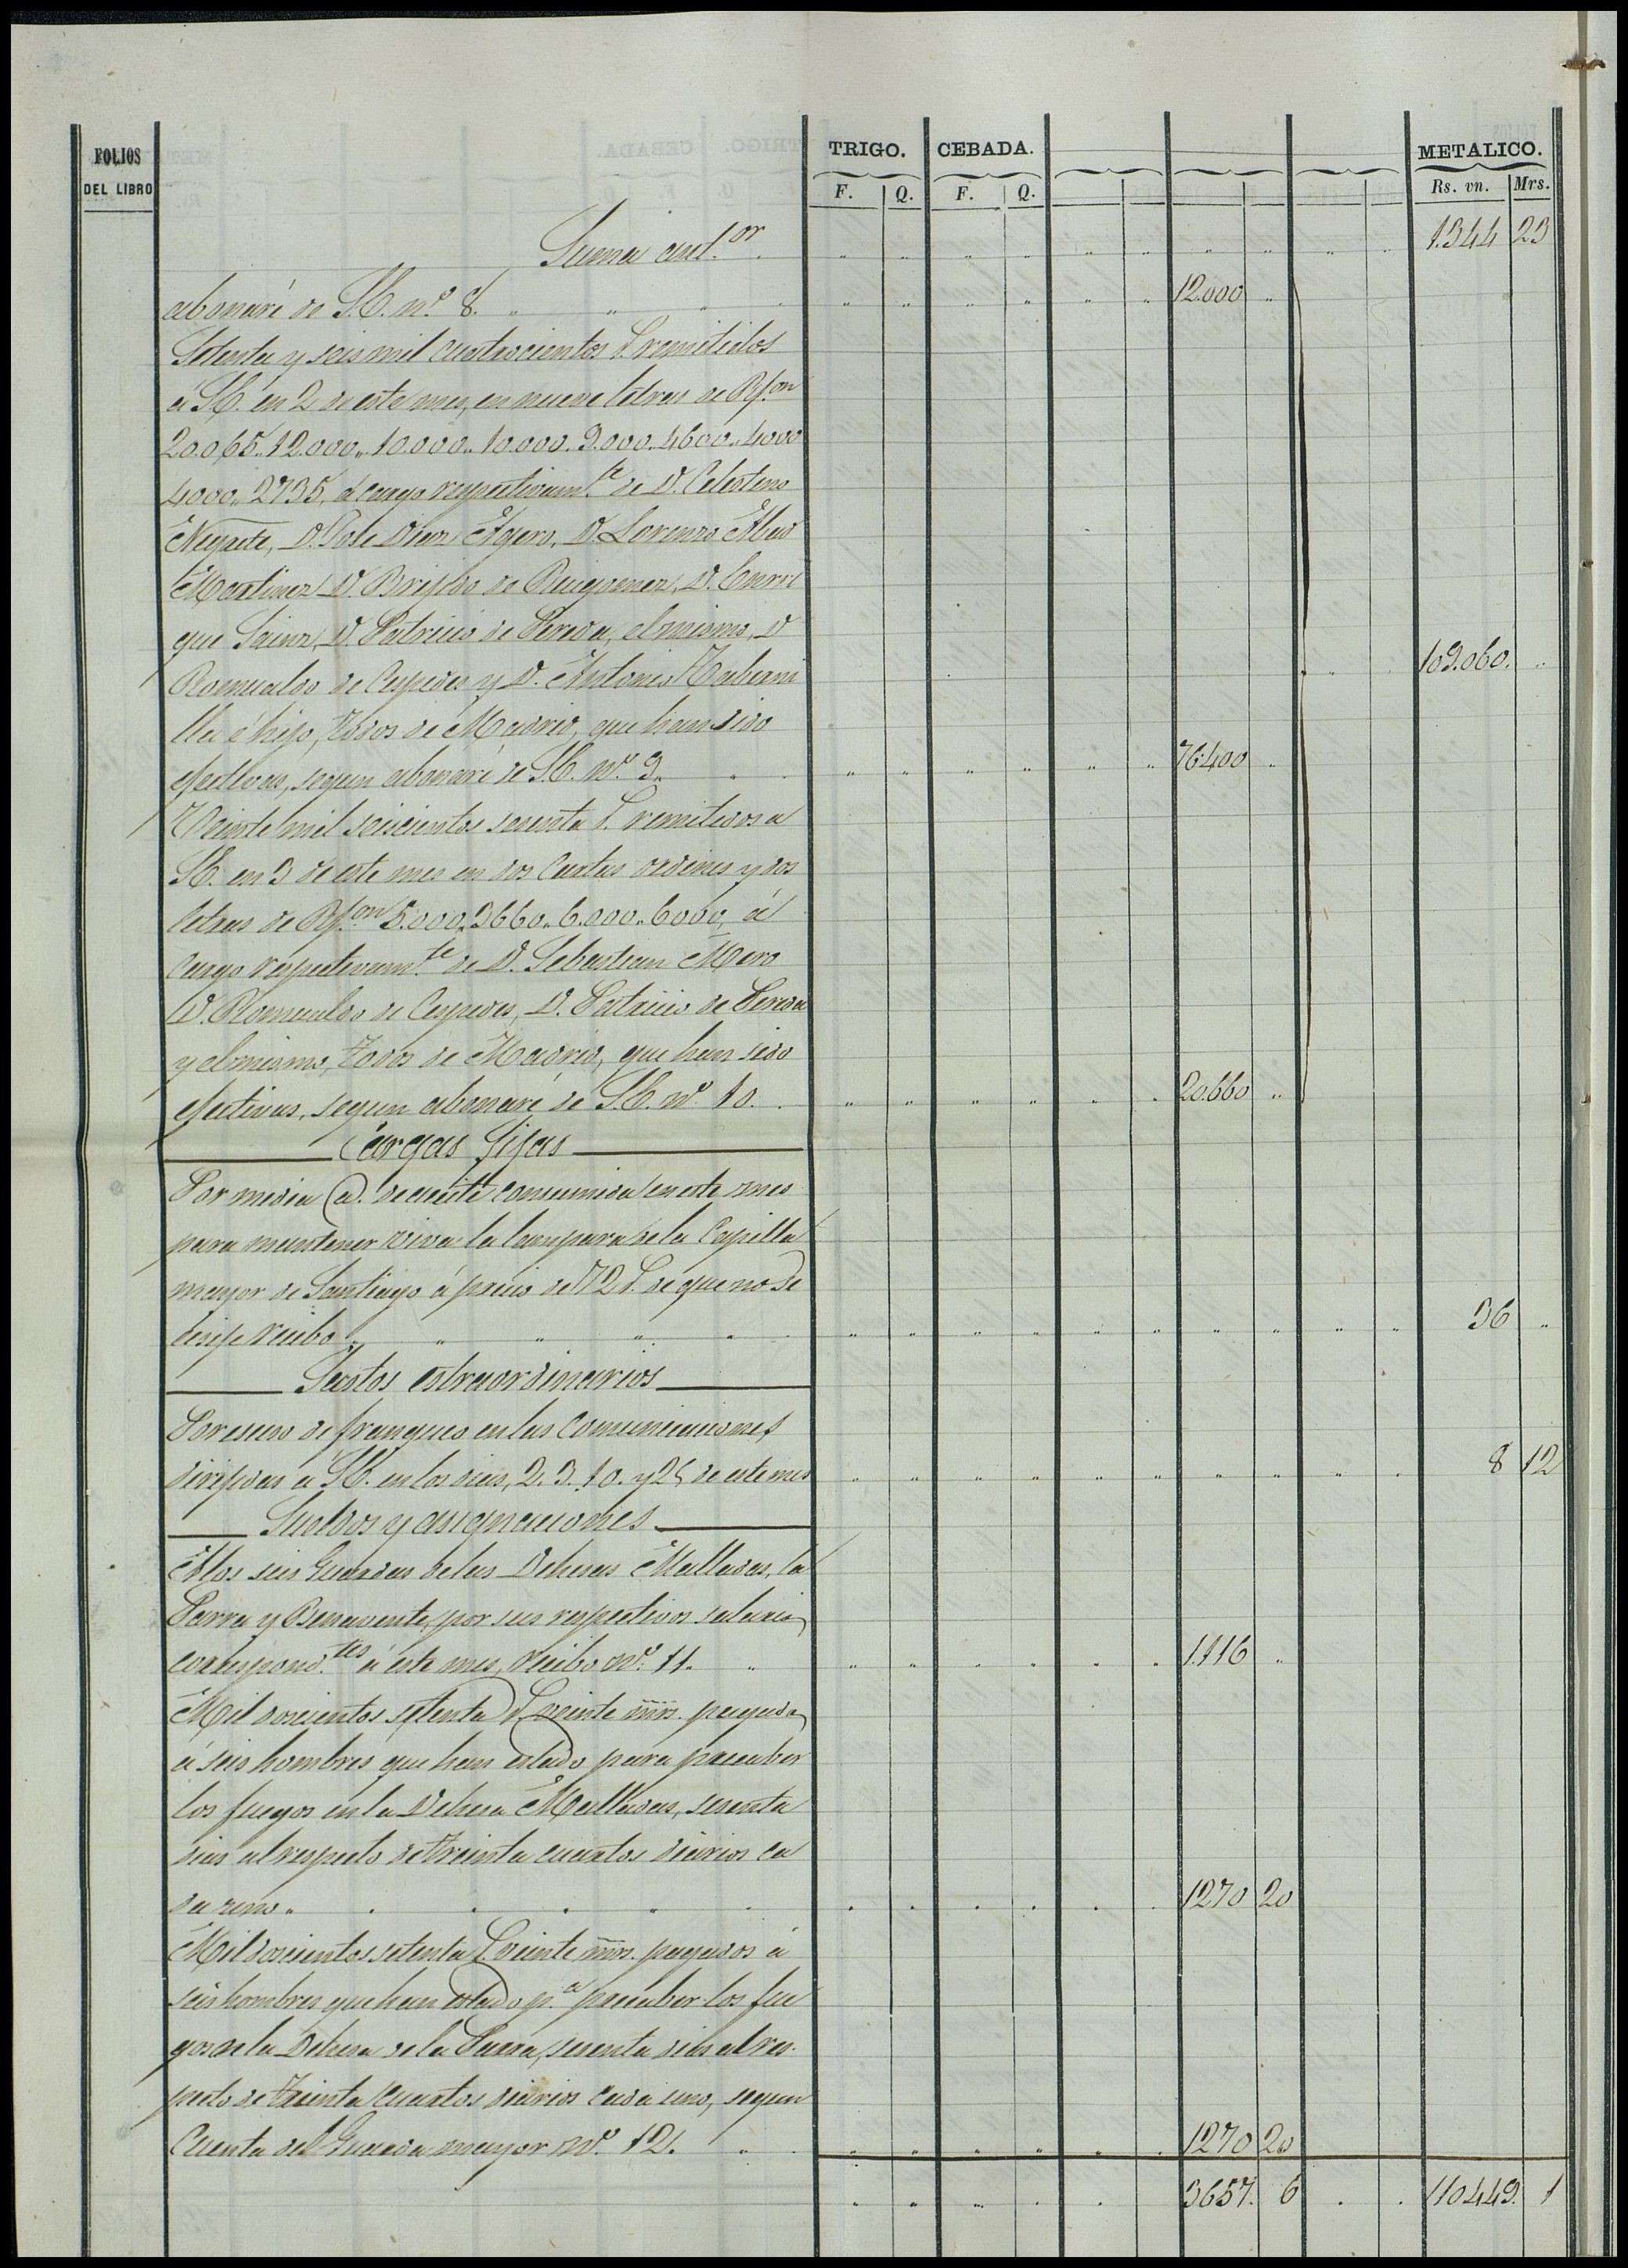 FOLIOS
DEL LIBRO
TRIGO. CEBADA. METALICO.
F. Q. F. Q. Rs. vn. Mrs.
Suma ant.or 1.344 23
abonaré de S.E. nº 8. 12.000
Setenta y seis mil cuatrocientos r. remitidos
á S.E. en 2 de este mes, en nueve letras de
20.065. 12.000. 10.000. 10.000. 9.000. 4600. 4000
4000. 2735, á cargo respectivam.te de D. Celestino
Negrete, D. José Diaz Agero, D. Lorenzo Abad
Martinez, D. de D. Enrri
que Sainz, D. Patricio de Pereda, el mismo, D
Romualdo de Cespedes y D. Antonio 109.060.
lla é hijo, todos de Madrid, que han sido
efectivas, segun abonaré de S.E. nº 9. 76.400
Veinte mil seiscientos sesenta r. remitidos a
S.E. en 9 de este mes en dos Cartas ordenes y dos
letras de 5.000. 3660. 6.000. 6000, á
cargo respectivam.te de D. Sebastian
D. Romualdo de Cespedes, D. Patricio de Pereda
y el mismo, todos de Madrid, que han sido
efectivas, segun abonaré de S.E. nº 10. 20.660
Cargas fijas
Por media @. de aceite consumida en este mes
para mantener viva la lampara de la Capilla
mayor de Santiago á precio de 72 r. de que no se
exije recibo 36
Gastos estraordinarios
Por esceso de franqueo en las comunicaciones
dirijidas á S.E. en los dias, 2. 9. 10. y 25 de este mes 8 12
Sueldos y asignaciones
A los seis Guardas de las Dehesas Malladas, la
Parra y Benavente, por sus respectivos salarios
correspond.tes á este mes, recibo nº 11. 1.116
Mil doscientos setenta r. veinte mrs. pagados
á seis hombres que han estado para precaber
los fuegos en la Dehesa Malladas, sesenta
dias al respecto de treinta cuartos diarios ca
da uno. 1270 20
Mil doscientos setenta r. veinte mrs. pagados á
seis hombres que han estado p.a precaber los fue
gos en la Dehesa de la Parra, sesenta dias al res-
pecto de treinta cuartos diarios cada uno, segun
Cuenta del Guarda mayor nº 12. 1270 20
3657. 6 110.449. 1